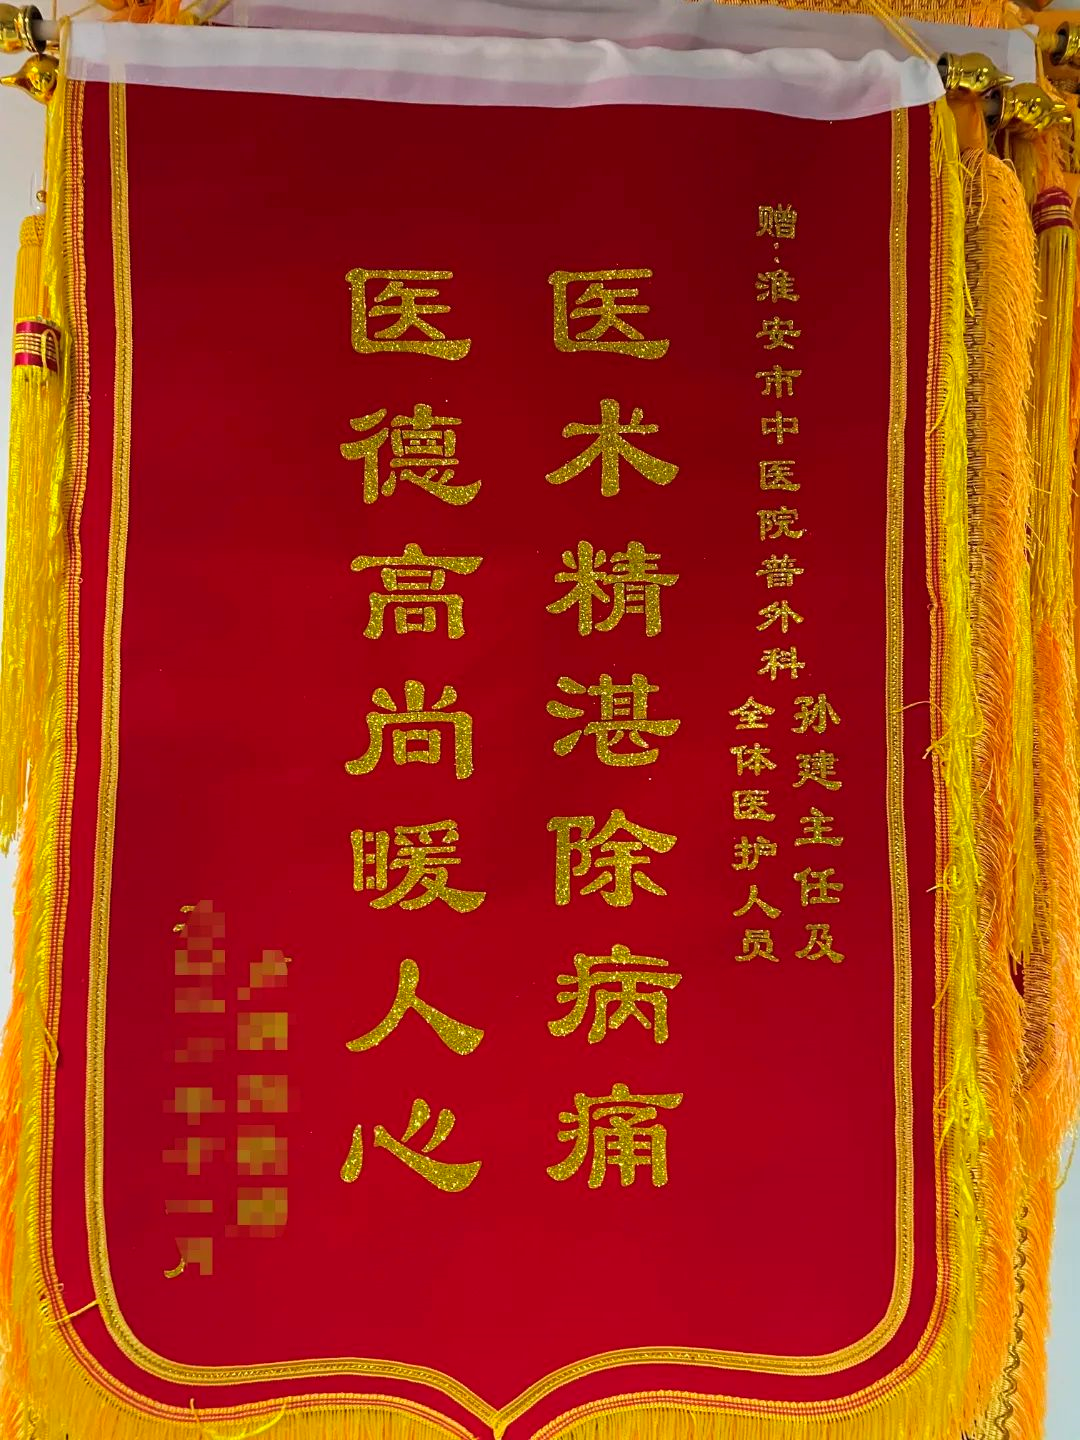 赠：淮安市中医院普外科
孙建主任及
全体医护人员
医术精湛除病痛
医德高尚暖人心